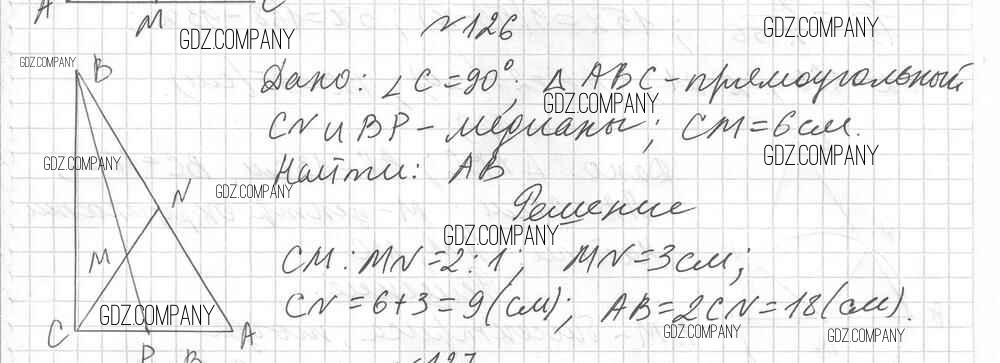 A M C
№126
GDZ.COMPANY
GDZ.COMPANY
GDZ.COMPANY
B
Дано: ∠C=90°; △ABC-прямоугольный
GDZ.COMPANY
CN и BP - медианы; CM=6см.
GDZ.COMPANY
GDZ.COMPANY
Найти: AB
GDZ.COMPANY
N
Решение
GDZ.COMPANY
M
CM:MN=2:1; MN=3см;
CN=6+3=9(см); AB=2CN=18(см).
GDZ.COMPANY
GDZ.COMPANY
GDZ.COMPANY
C A
P B
№127